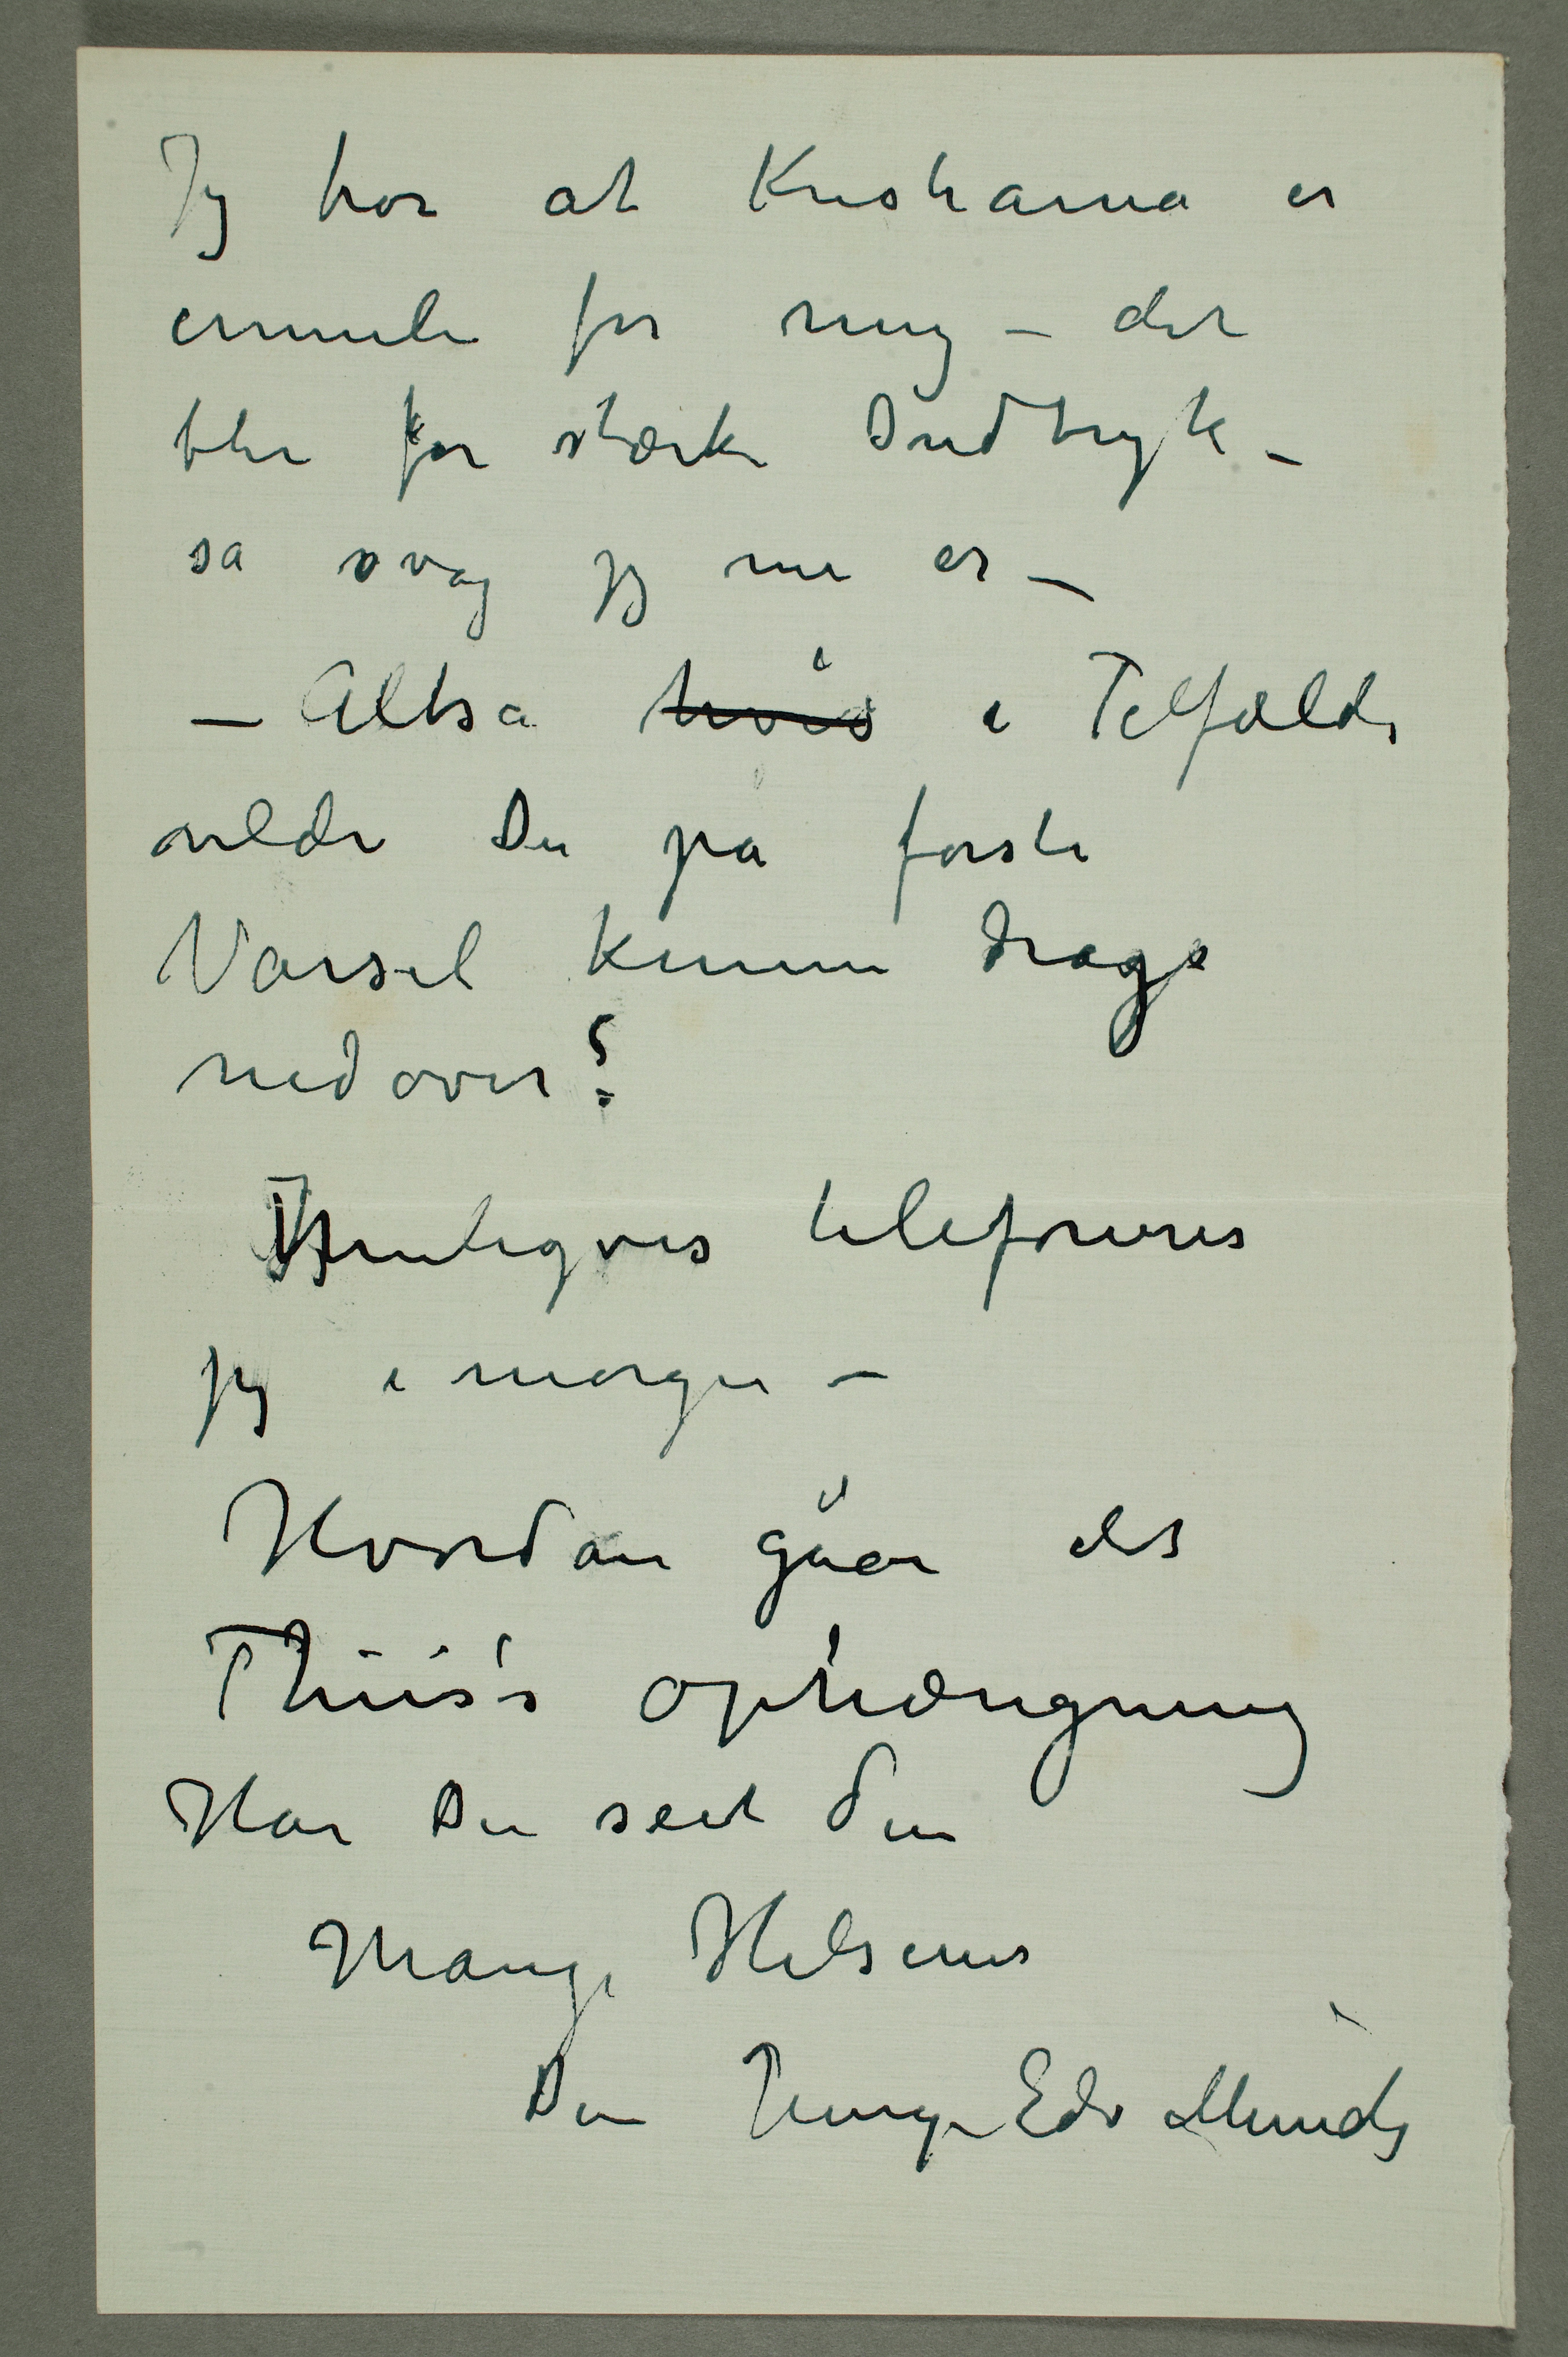 Jeg tror at Kristiania er
umulig for mig – det
blir for stærke Indtryk –
så svag jeg nu er –
– Altså ~~hvis~~ i Tilfælde
vilde Du på første
Varsel kunne drage
nedover?
Rimeligvis telefoneres
jeg i morgen –
Hvordan gåar det
Thiis's ophængning
Har Du seet den
Mange Hilsener
Din Hengivne Edv Munch